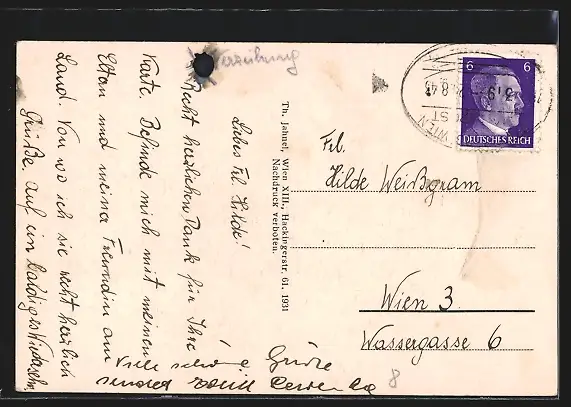 Verzeihung
Liebes Frl. Hilde!
Recht herzlichen Dank für Ihre
Karte. Befinde mich mit meinen
Eltern und meiner Freundin am
Land. Von wo ich sie recht herzlich
Grüße. Auf ein baldiges Wiedersehn
Viele schöne Grüße
sendet
Th. Jahnel, Wien XIII., Hackingerstr. 61. 1931
Nachdruck verboten.
6 6
DEUTSCHES REICH
WIEN
Frl.
Hilde Weißgram
Wien 3.
Wassergasse 6
8